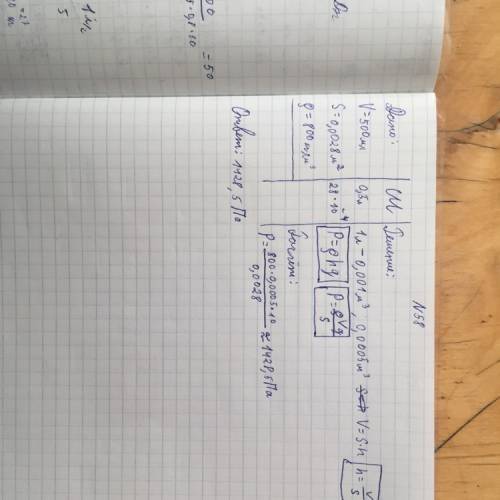 N58
Дано:
V=500мл
S=0,0028м²
ρ=800 кг/м³
СИ
0,5л
28·10⁻⁴
Решение:
1л – 0,001м³; 0,0005м³ V=S·h h=V/S
P=ρhg P=ρVg/S
Расчёт:
P=800·0,0005·10/0,0028≈1428,5Па
Ответ: 1128,5Па
=50